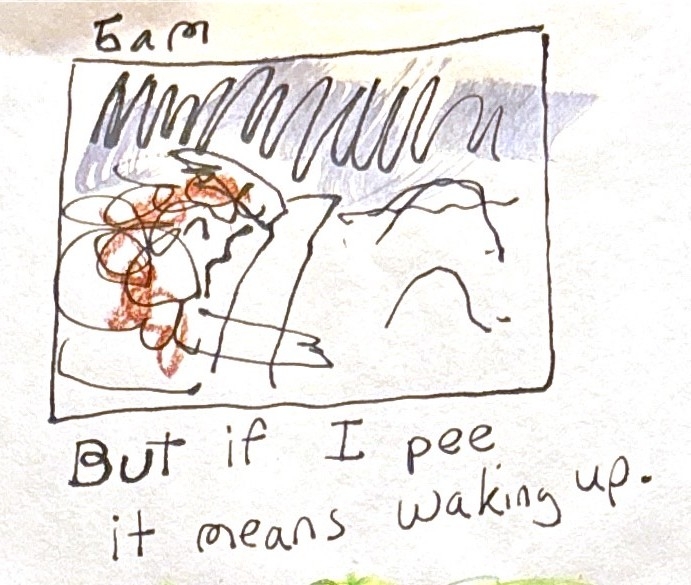 5am
But if I pee
it means waking up.